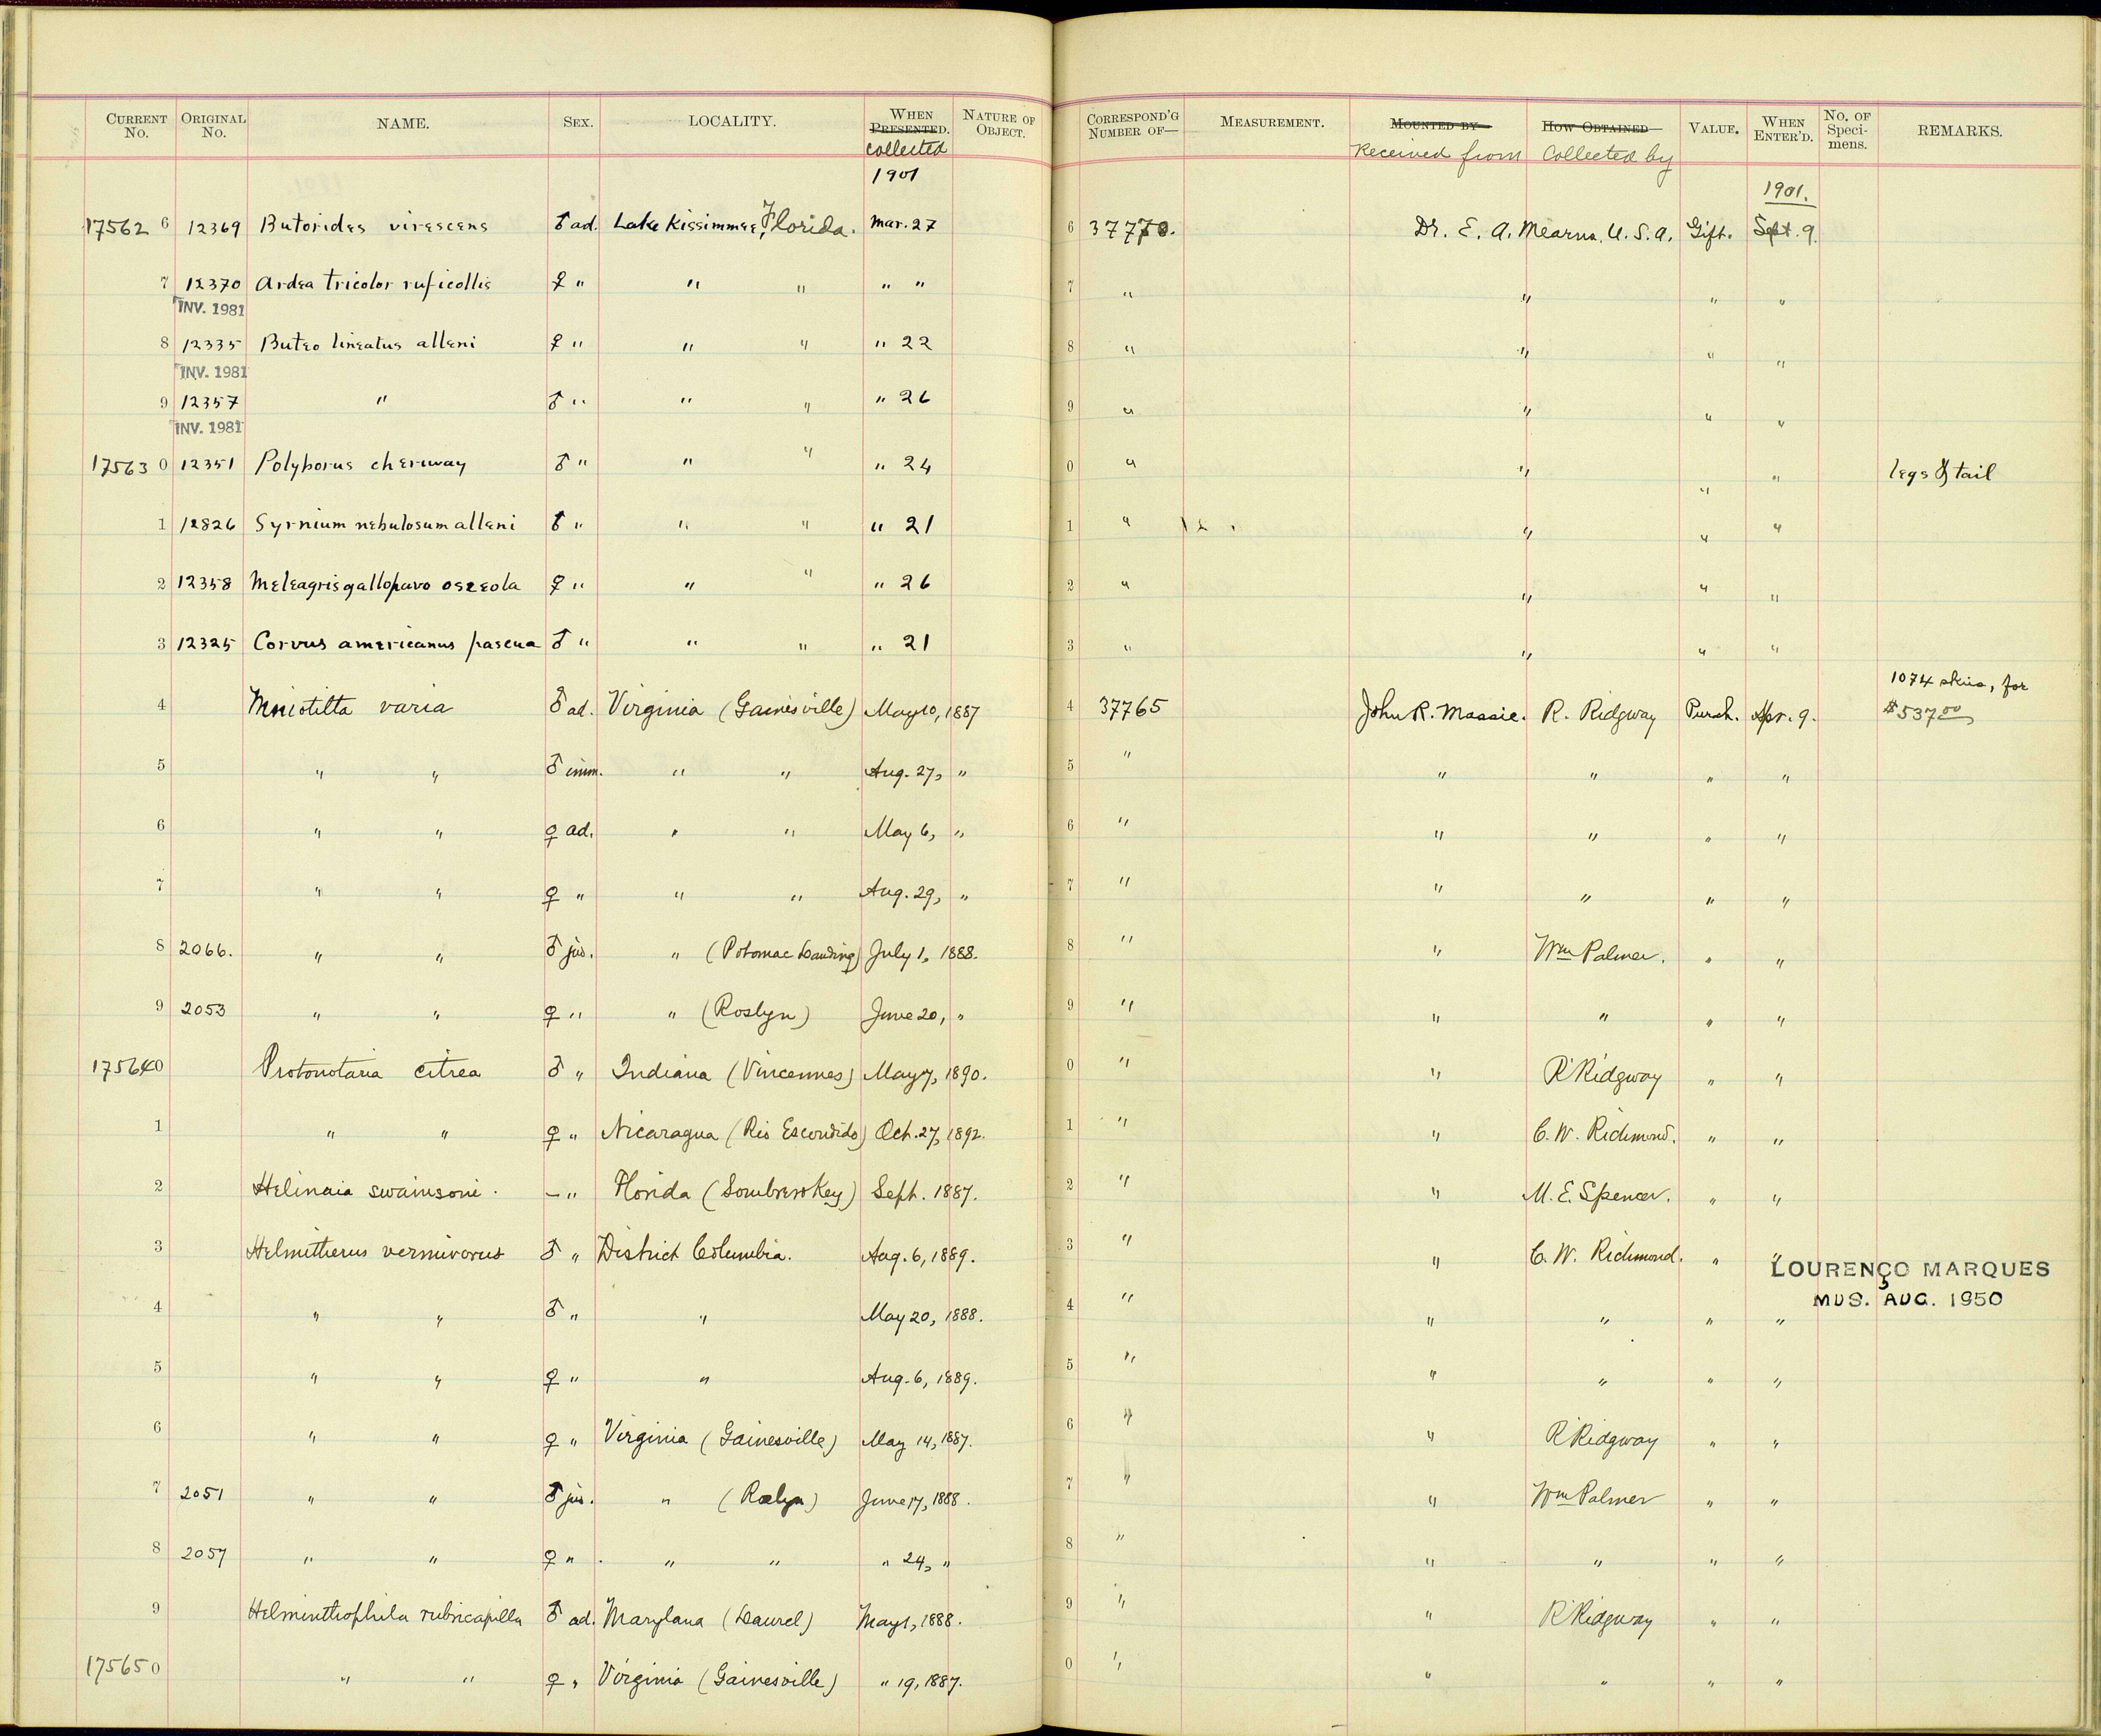 CURRENT No. ORIGINAL No. NAME. SEX. LOCALITY. WHEN PRESENTED. collected NATURE OF OBJECT. CORRESPOND'G NUMBER OF— MEASUREMENT. MOUNTED BY— Received from HOW OBTAINED— Collected by VALUE. WHEN ENTER'D. No. OF Speci-mens. REMARKS.
1901 1901.
17562 6 12369 Butorides virescens ♂ ad. Lake Kissimmee, Florida. Mar. 27 6 37770. Dr. E. A. Mearns, U. S. A. Gift. Sept. 9.
7 12370 Ardea tricolor ruficollis ♀ " " " " " 7 " " " "
INV. 1981
8 12335 Buteo lineatus alleni ♀ " " " " 22 8 " " " "
INV. 1981
9 12357 " ♂ " " " " 26 9 " " " "
INV. 1981
17563 0 12351 Polyborus cheriway ♂ " " " " 24 0 " " " " legs & tail
1 12826 Syrnium nebulosum alleni ♂ " " " " 21 1 " " " "
2 12358 Meleagris gallopavo osceola ♀ " " " " 26 2 " " " "
3 12325 Corvus americanus pascua ♂ " " " " 21 3 " " " "
4 Mniotilta varia ♂ ad. Virginia (Gainesville) May 10, 1887 4 37765 John R. Massie. R. Ridgway Purch. Apr. 9. 1074 skins, for $537.00
5 " " ♂ imm. " " Aug. 27, " 5 " " " " "
6 " " ♀ ad. " " May 6, " 6 " " " " "
7 " " ♀ " " " Aug. 29, " 7 " " " " "
8 2066. " " ♂ juv. " (Potomac Landing) July 1, 1888. 8 " " Wm Palmer. " "
9 2053 " " ♀ " " (Roslyn) June 20, " 9 " " " " "
175640 Protonotaria citrea ♂ " Indiana (Vincennes) May 7, 1890. 0 " " R Ridgway " "
1 " " ♀ " Nicaragua (Rio Escondido) Oct. 27, 1892. 1 " " C. W. Richmond. " "
2 Helinaia swainsoni. – " Florida (Sombrero Key) Sept. 1887. 2 " " M. E. Spencer. " "
3 Helmitherus vermivorus ♂ " District Columbia. Aug. 6, 1889. 3 " " C. W. Richmond. " "
LOURENÇO MARQUES
MUS. AUG. 1950
4 " " ♂ " " May 20, 1888. 4 " " " " "
5 " " ♀ " " Aug. 6, 1889. 5 " " " " "
6 " " ♀ " Virginia (Gainesville) May 14, 1887. 6 " " R Ridgway " "
7 2051 " " ♂ juv. " (Roslyn) June 17, 1888. 7 " " Wm Palmer " "
8 2057 " " ♀ " " " " 24, " 8 " " " " "
9 Helminthophila rubricapilla ♂ ad. Maryland (Laurel) May 1, 1888. 9 " " R Ridgway " "
175650 " " ♀ " Virginia (Gainesville) " 19, 1887. 0 " " " " "